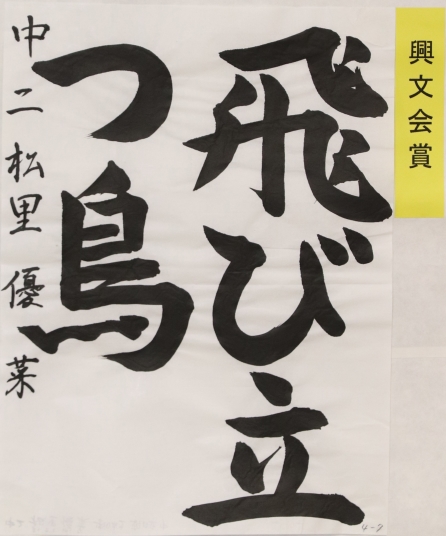 興文会賞
飛び立
つ鳥
中二 松里 優菜
4-7